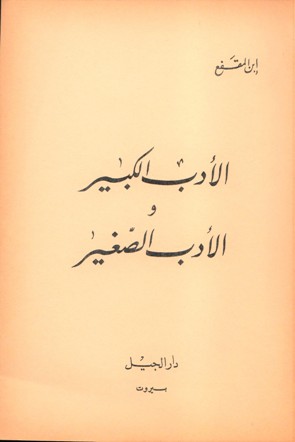 إبن المقفع
الأدب الكبير
و
الأدب الصغير
دار الجيل
بيروت